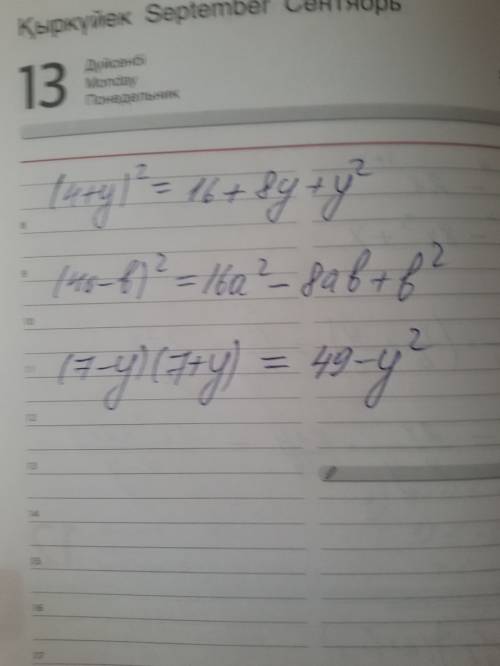 Қыркүйек September Сентябрь
13
Дүйсенбі
Monday
Понедельник
(4+y)² = 16 + 8y + y²
8
9
(4a-b)² = 16a² - 8ab + b²
10
(7-y)(7+y) = 49-y²
11
12
13
14
15
16
17